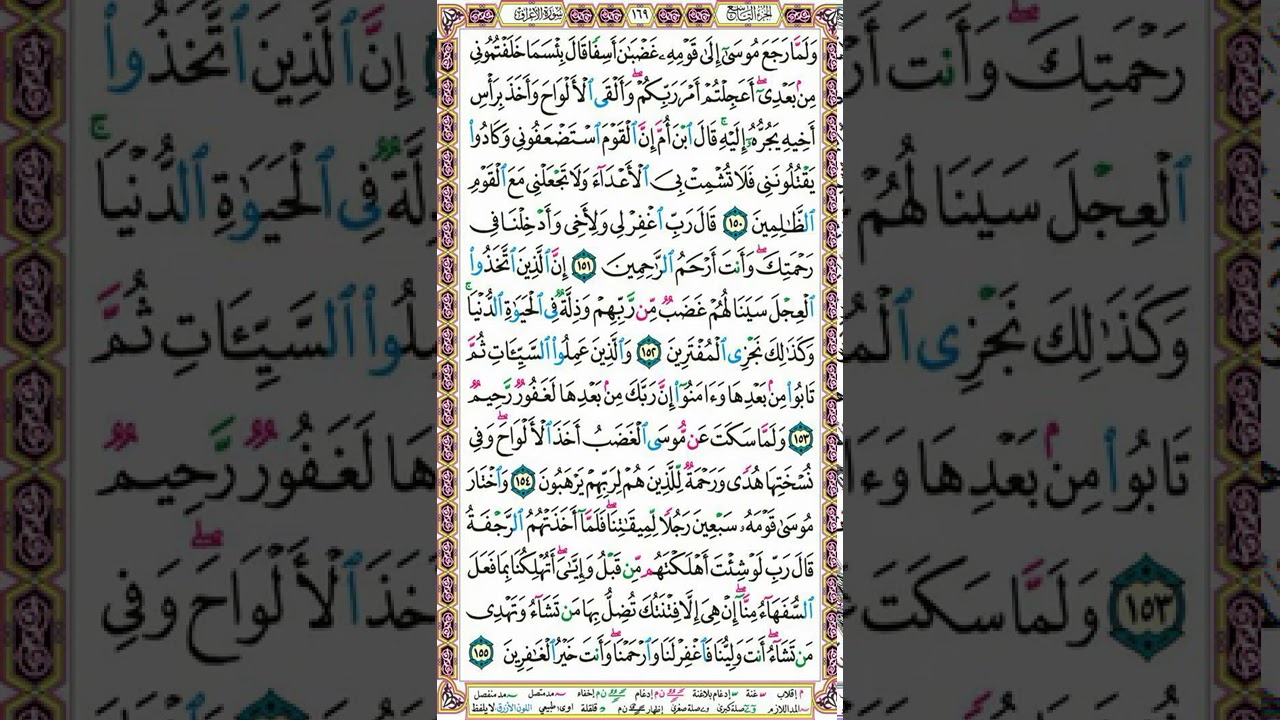 الجزء التاسع ١٦٩ سورة الأعراف
وَلَمَّا رَجَعَ مُوسَىٰٓ إِلَىٰ قَوْمِهِۦ غَضْبَٰنَ أَسِفًا قَالَ بِئْسَمَا خَلَفْتُمُونِي
مِنۢ بَعْدِيٓۖ أَعَجِلْتُمْ أَمْرَ رَبِّكُمْۖ وَأَلْقَى ٱلْأَلْوَاحَ وَأَخَذَ بِرَأْسِ
أَخِيهِ يَجُرُّهُۥٓ إِلَيْهِۚ قَالَ ٱبْنَ أُمَّ إِنَّ ٱلْقَوْمَ ٱسْتَضْعَفُونِي وَكَادُوا۟
يَقْتُلُونَنِي فَلَا تُشْمِتْ بِيَ ٱلْأَعْدَآءَ وَلَا تَجْعَلْنِي مَعَ ٱلْقَوْمِ
ٱلظَّٰلِمِينَ ١٥٠ قَالَ رَبِّ ٱغْفِرْ لِي وَلِأَخِي وَأَدْخِلْنَا فِي
رَحْمَتِكَۖ وَأَنتَ أَرْحَمُ ٱلرَّٰحِمِينَ ١٥١ إِنَّ ٱلَّذِينَ ٱتَّخَذُوا۟
ٱلْعِجْلَ سَيَنَالُهُمْ غَضَبٌ مِّن رَّبِّهِمْ وَذِلَّةٌ فِي ٱلْحَيَوٰةِ ٱلدُّنْيَاۚ
وَكَذَٰلِكَ نَجْزِي ٱلْمُفْتَرِينَ ١٥٢ وَٱلَّذِينَ عَمِلُوا۟ ٱلسَّيِّـَٔاتِ ثُمَّ
تَابُوا۟ مِنۢ بَعْدِهَا وَءَامَنُوٓا۟ إِنَّ رَبَّكَ مِنۢ بَعْدِهَا لَغَفُورٌ رَّحِيمٌ
١٥٣ وَلَمَّا سَكَتَ عَن مُّوسَى ٱلْغَضَبُ أَخَذَ ٱلْأَلْوَاحَۖ وَفِي
نُسْخَتِهَا هُدًى وَرَحْمَةٌ لِّلَّذِينَ هُمْ لِرَبِّهِمْ يَرْهَبُونَ ١٥٤ وَٱخْتَارَ
مُوسَىٰ قَوْمَهُۥ سَبْعِينَ رَجُلًا لِّمِيقَٰتِنَاۖ فَلَمَّآ أَخَذَتْهُمُ ٱلرَّجْفَةُ
قَالَ رَبِّ لَوْ شِئْتَ أَهْلَكْتَهُم مِّن قَبْلُ وَإِيَّٰيَۖ أَتُهْلِكُنَا بِمَا فَعَلَ
ٱلسُّفَهَآءُ مِنَّآۖ إِنْ هِيَ إِلَّا فِتْنَتُكَ تُضِلُّ بِهَا مَن تَشَآءُ وَتَهْدِي
مَن تَشَآءُۖ أَنتَ وَلِيُّنَا فَٱغْفِرْ لَنَا وَٱرْحَمْنَاۖ وَأَنتَ خَيْرُ ٱلْغَٰفِرِينَ ١٥٥
م إقلاب غنة إدغام بلاغنة ن م إدغام ن م إخفاء مد متصل مد منفصل
المد اللازم صلة كبرى صلة صغرى إظهار ن م قلقلة اوى طبيعي اللون الأزرق لا يلفظ